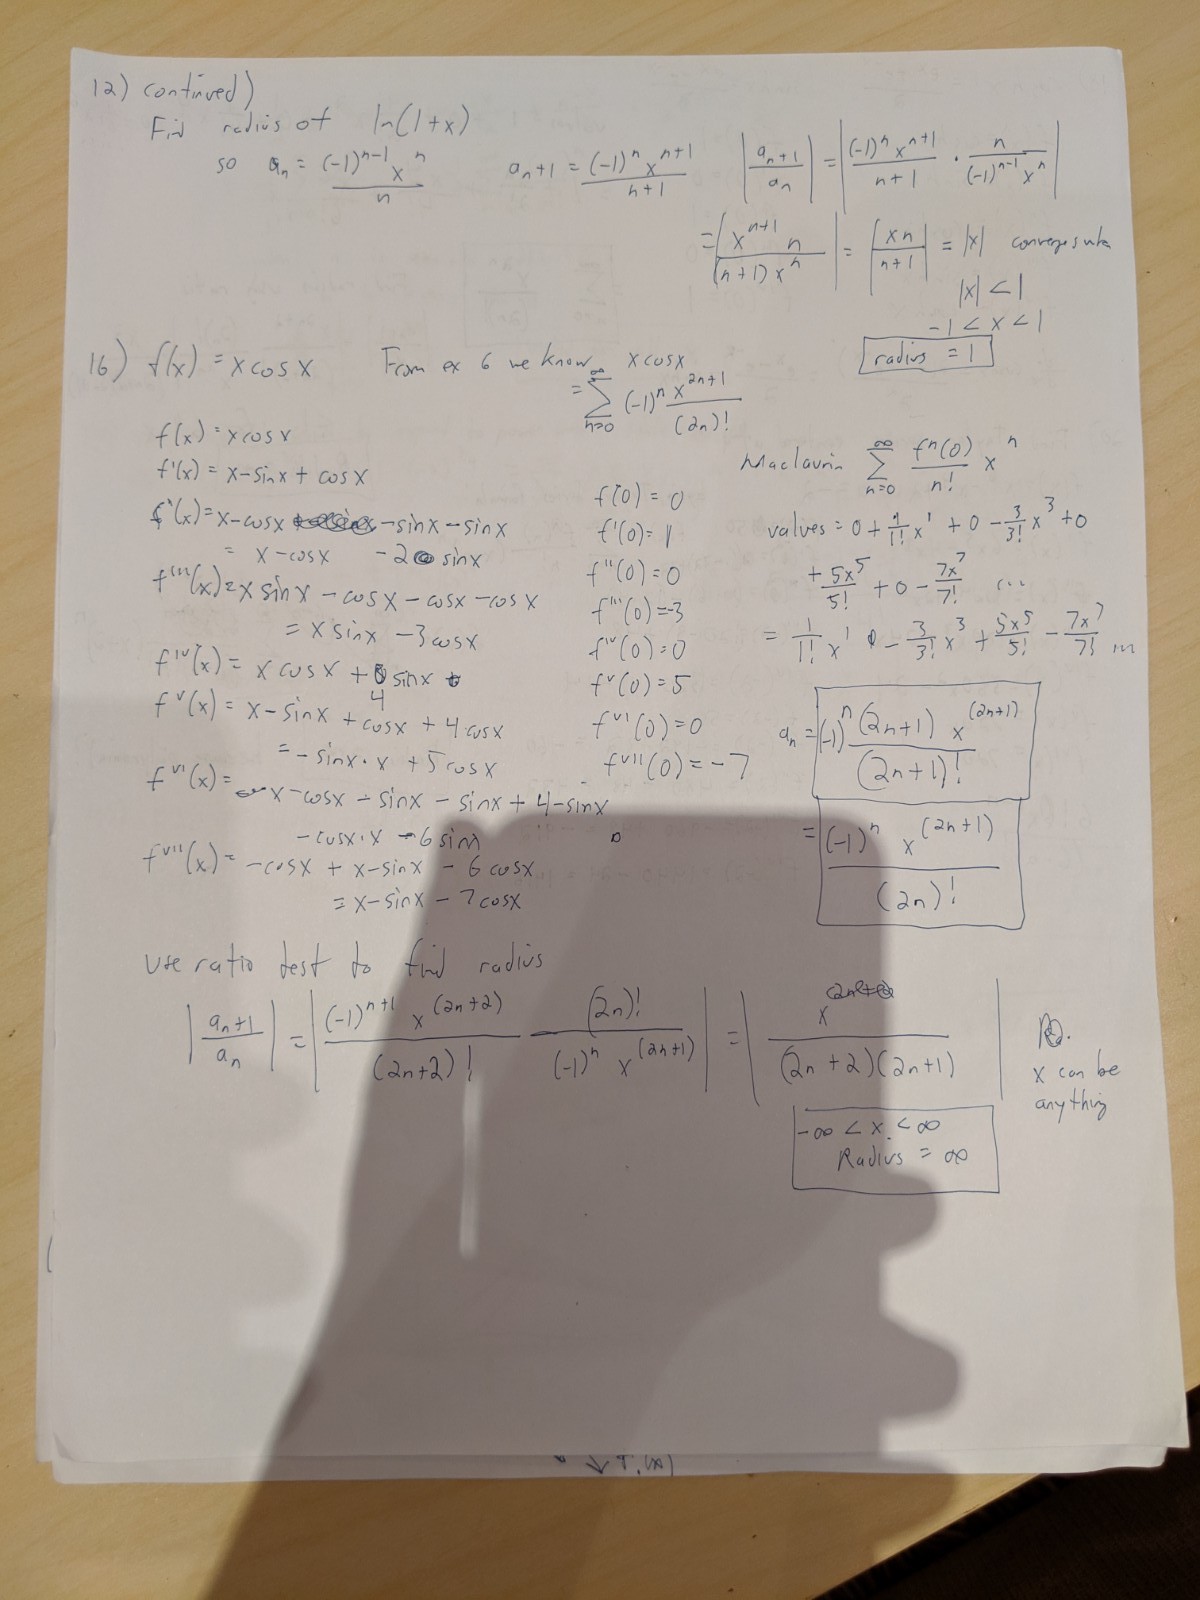 12) continued)
Find radius of ln(1+x)
so aₙ = (-1)^(n-1) x^n / n    aₙ+1 = (-1)^n x^(n+1) / (n+1)    |aₙ₊₁ / aₙ| = |(-1)^n x^(n+1) / (n+1) · n / ((-1)^(n-1) x^n)|
= |x^(n+1) n / ((n+1) x^n)| = |xn / (n+1)| = |x| converges when
|x| < 1
-1 < x < 1
radius = 1
16) f(x) = x cos x    From ex 6 we know x cos x
= ∑_(n=0)^∞ (-1)^n x^(2n+1) / (2n)!
f(x) = x cos x
f'(x) = x - sin x + cos x
f''(x) = x - cos x - sin x - sin x
= x - cos x - 2 sin x
f'''(x) = x sin x - cos x - cos x - cos x
= x sin x - 3 cos x
f^IV(x) = x cos x + 4 sin x
f^V(x) = x - sin x + cos x + 4 cos x
= - sin x · x + 5 cos x
f^VI(x) = x - cos x - sin x - sin x + 4 - sin x
- cos x · x - 6 sin x
f^VII(x) = - cos x + x - sin x - 6 cos x
= x - sin x - 7 cos x
f(0) = 0
f'(0) = 1
f''(0) = 0
f'''(0) = -3
f^IV(0) = 0
f^V(0) = 5
f^VI(0) = 0
f^VII(0) = -7
Maclaurin ∑_(n=0)^∞ f^n(0) / n! x^n
values = 0 + 1/1! x^1 + 0 - 3/3! x^3 + 0
+ 5x^5/5! + 0 - 7x^7/7! ...
= 1/1! x^1 - 3/3! x^3 + 5x^5/5! - 7x^7/7! ...
aₙ = (-1)^n (2n+1) x^(2n+1) / (2n+1)!
= (-1)^n x^(2n+1) / (2n)!
Use ratio test to find radius
|aₙ₊₁ / aₙ| = |(-1)^(n+1) x^(2n+2) / (2n+2)! (2n)! / ((-1)^n x^(2n+1))| = |x / ((2n+2)(2n+1))|
x can be
anything
-∞ < x < ∞
Radius = ∞